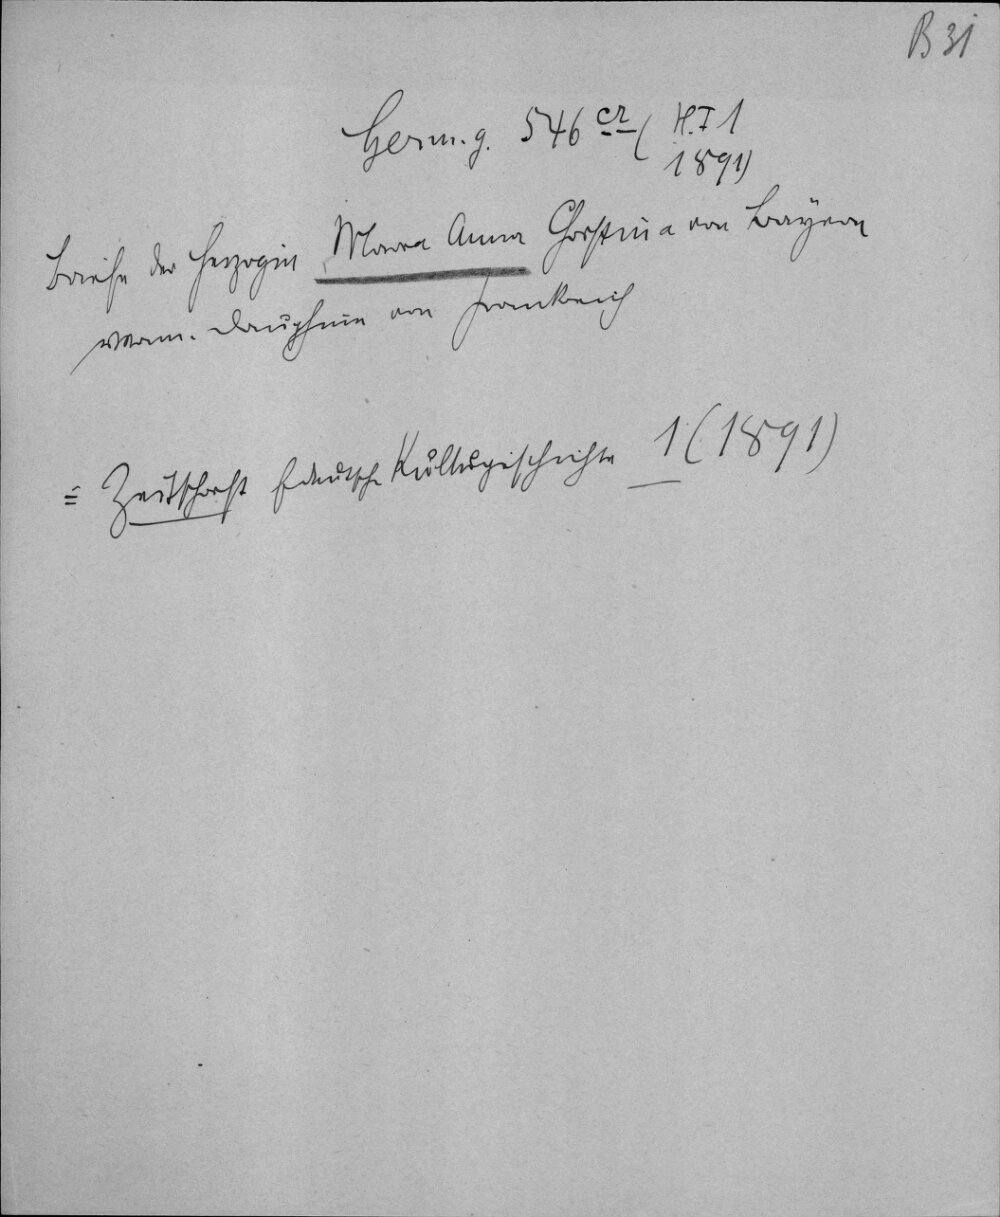 B 31
Germ. g. 546 cr ( N.F 1
1891)
Briefe der Herzogin Maria Anna Christina von Bayern
verm. Dauphine von Frankreich
= Zeitschrift f deutsche Kulturgeschichte 1 (1891)